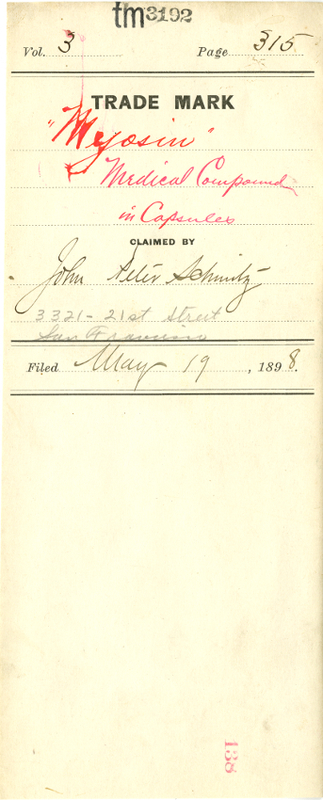 tm3192
Vol. 3 Page 315
TRADE MARK
"Myosin"
Medical Compound
in Capsules
CLAIMED BY
John Peter Schmitz
3321-21st Street
San Francisco
Filed May 19, 1898.
138